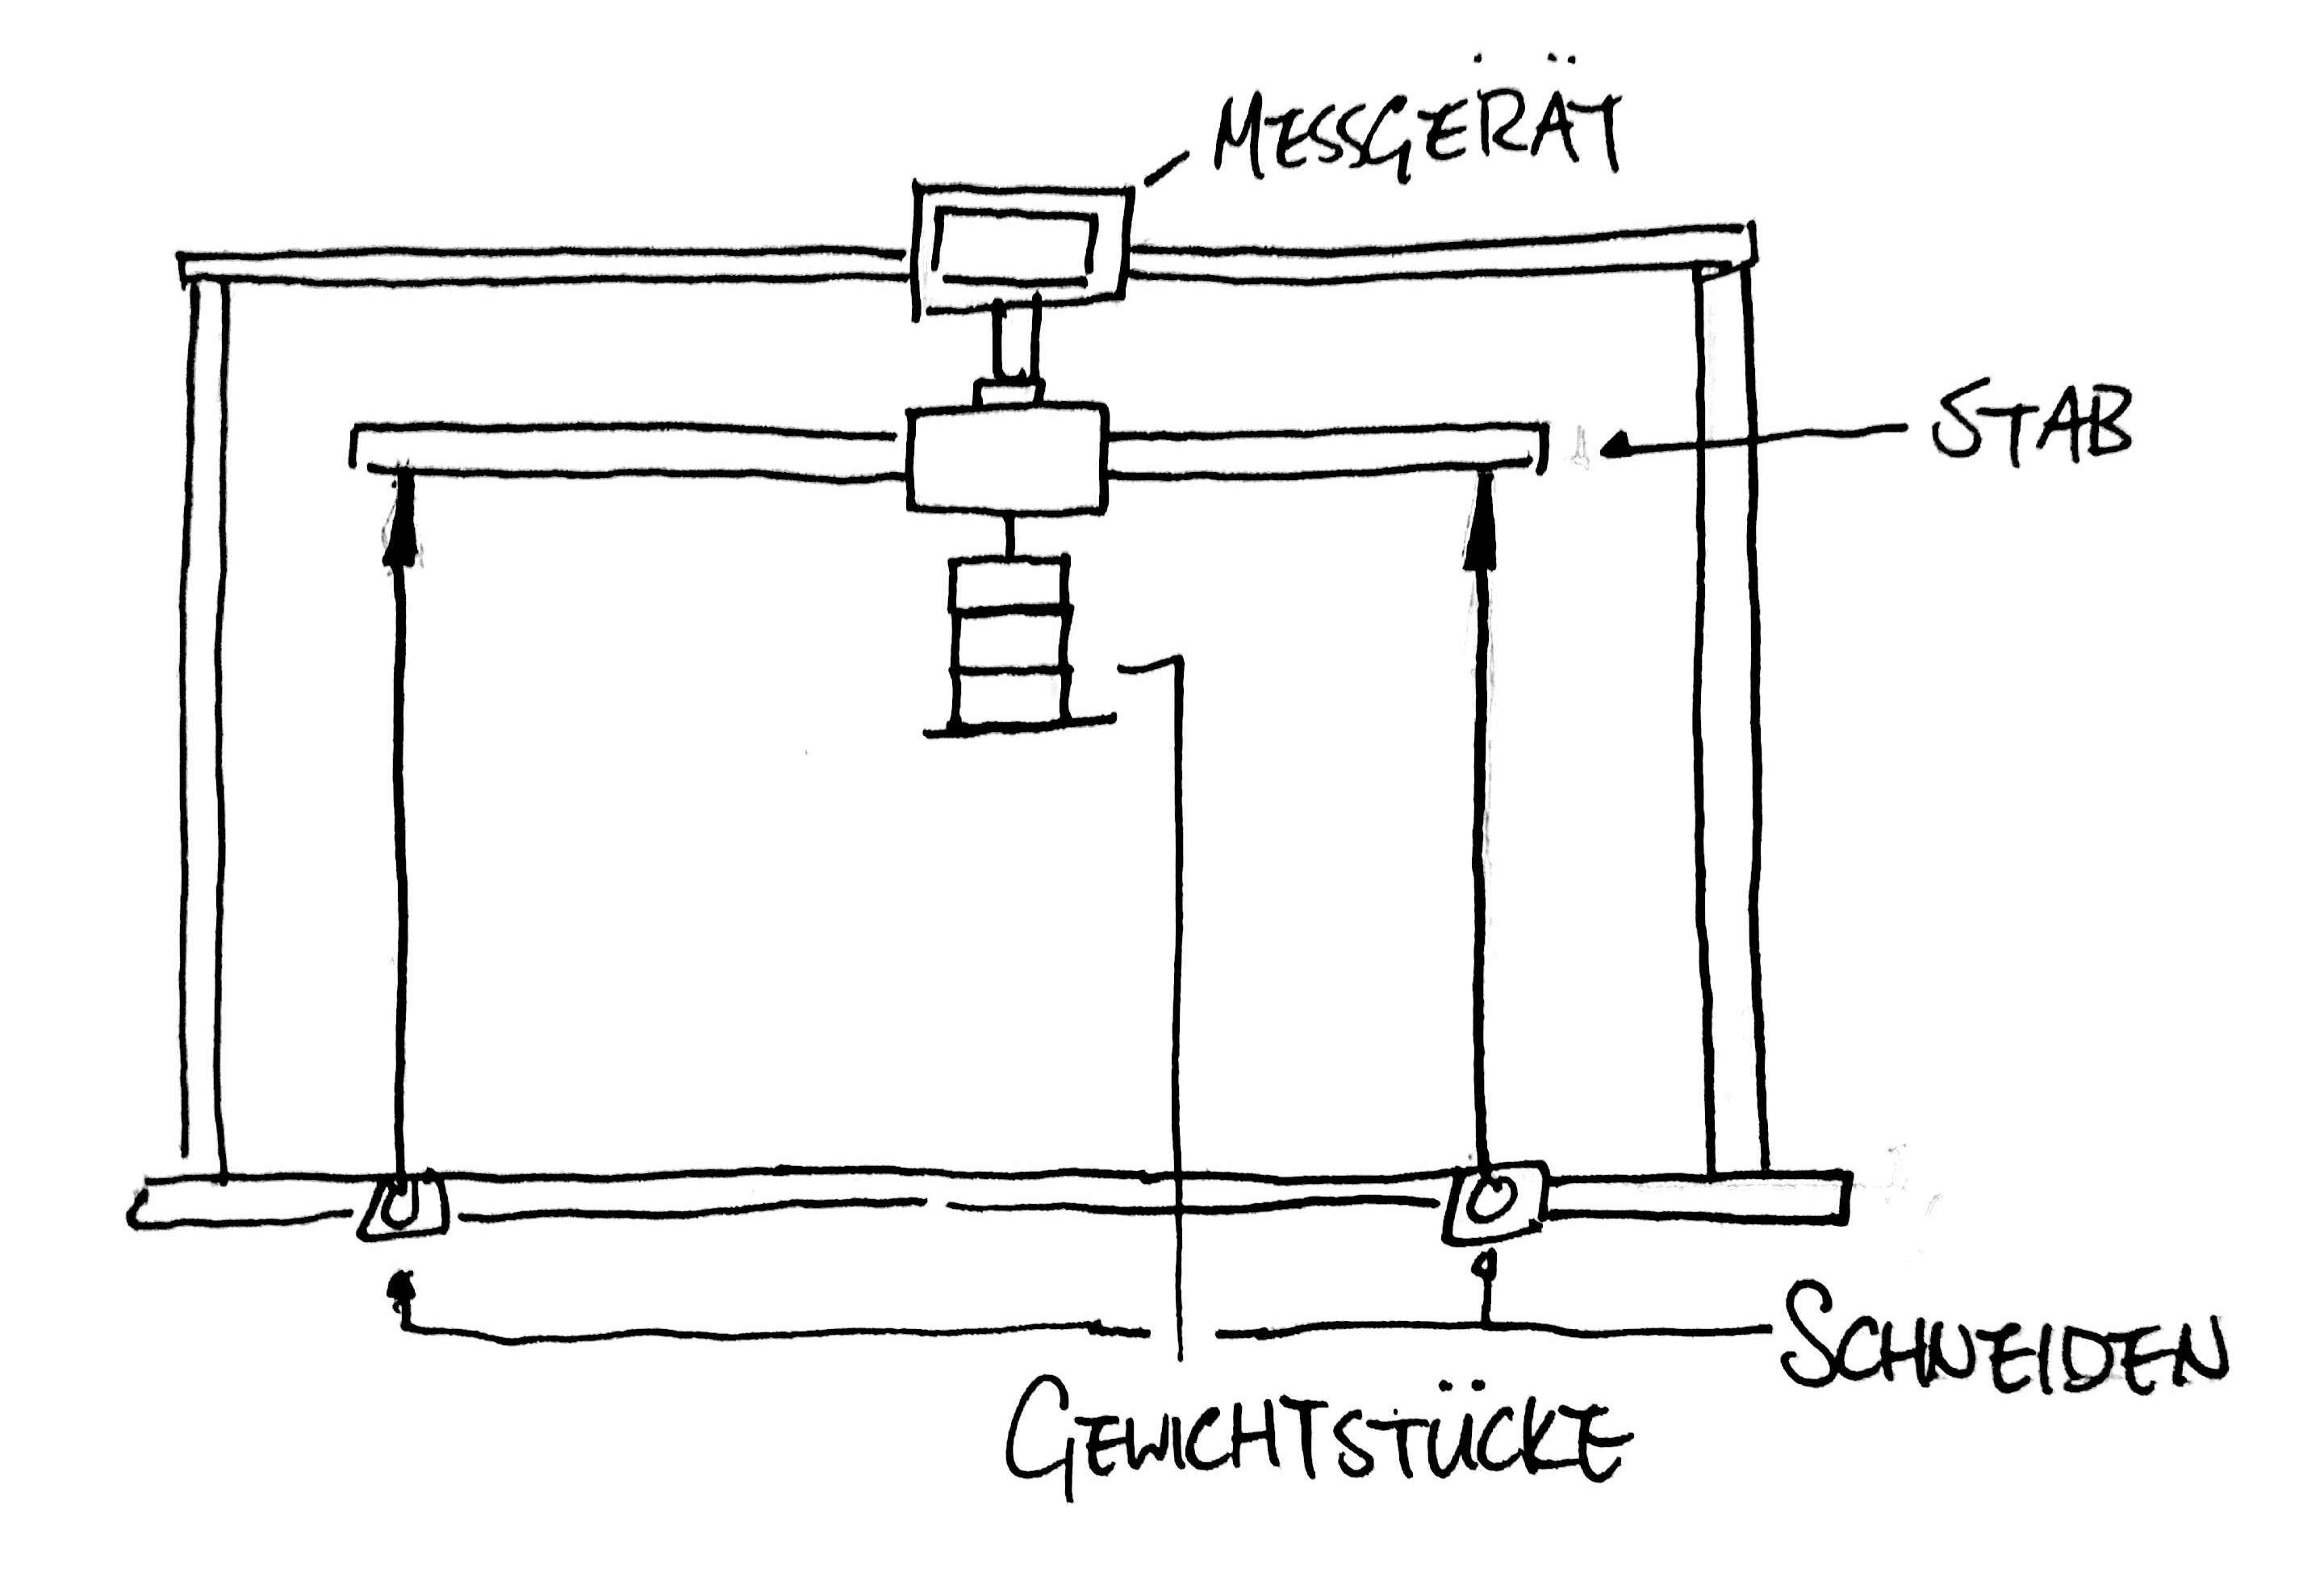 MESSGERÄT
STAB
SCHNEIDEN
GEWICHTSTÜCKE